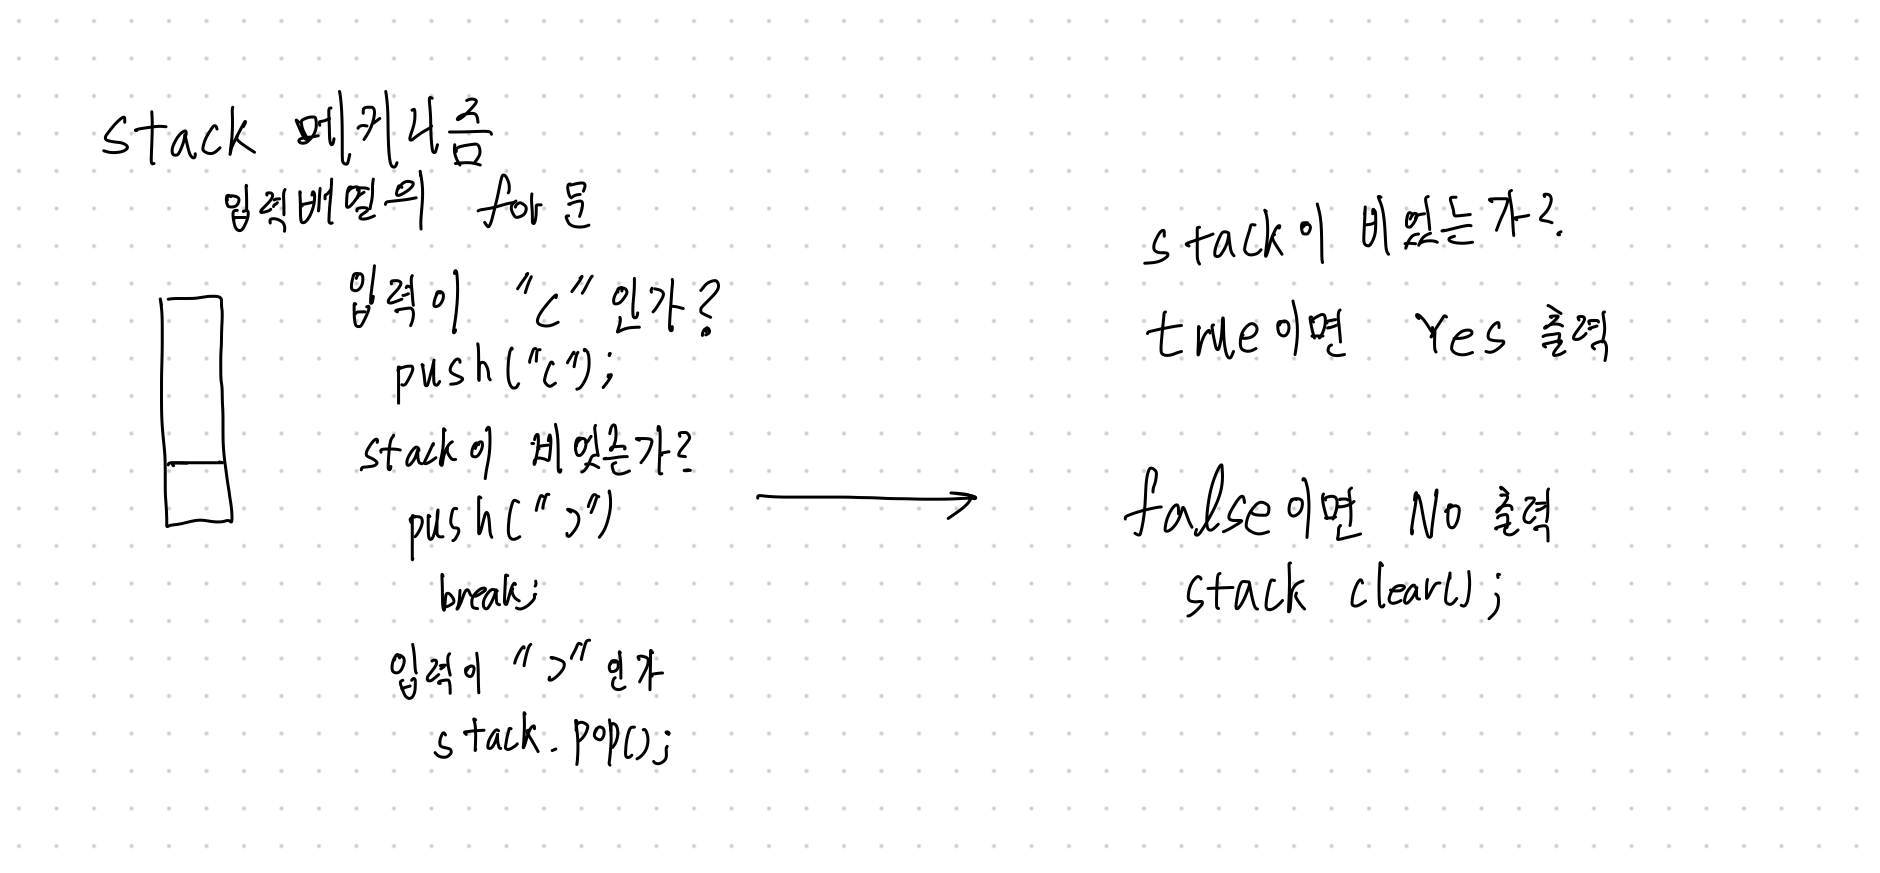 stack 메커니즘
입력배열의 for문
입력이 "("인가?
push("(");
stack이 비엇는가?
push(")")
break;
입력이 ")"인가
stack.pop();
stack이 비었는가?
true이면 Yes 출력
false이면 No 출력
stack clear();